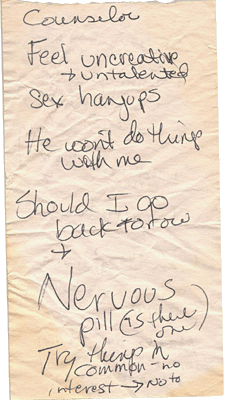 Counselor
Feel uncreative
→ untalented
Sex hangups
He won't do things
with me
Should I go
back
→
Nervous
pill (is there
one)
Try things in
common - no
interest → No to